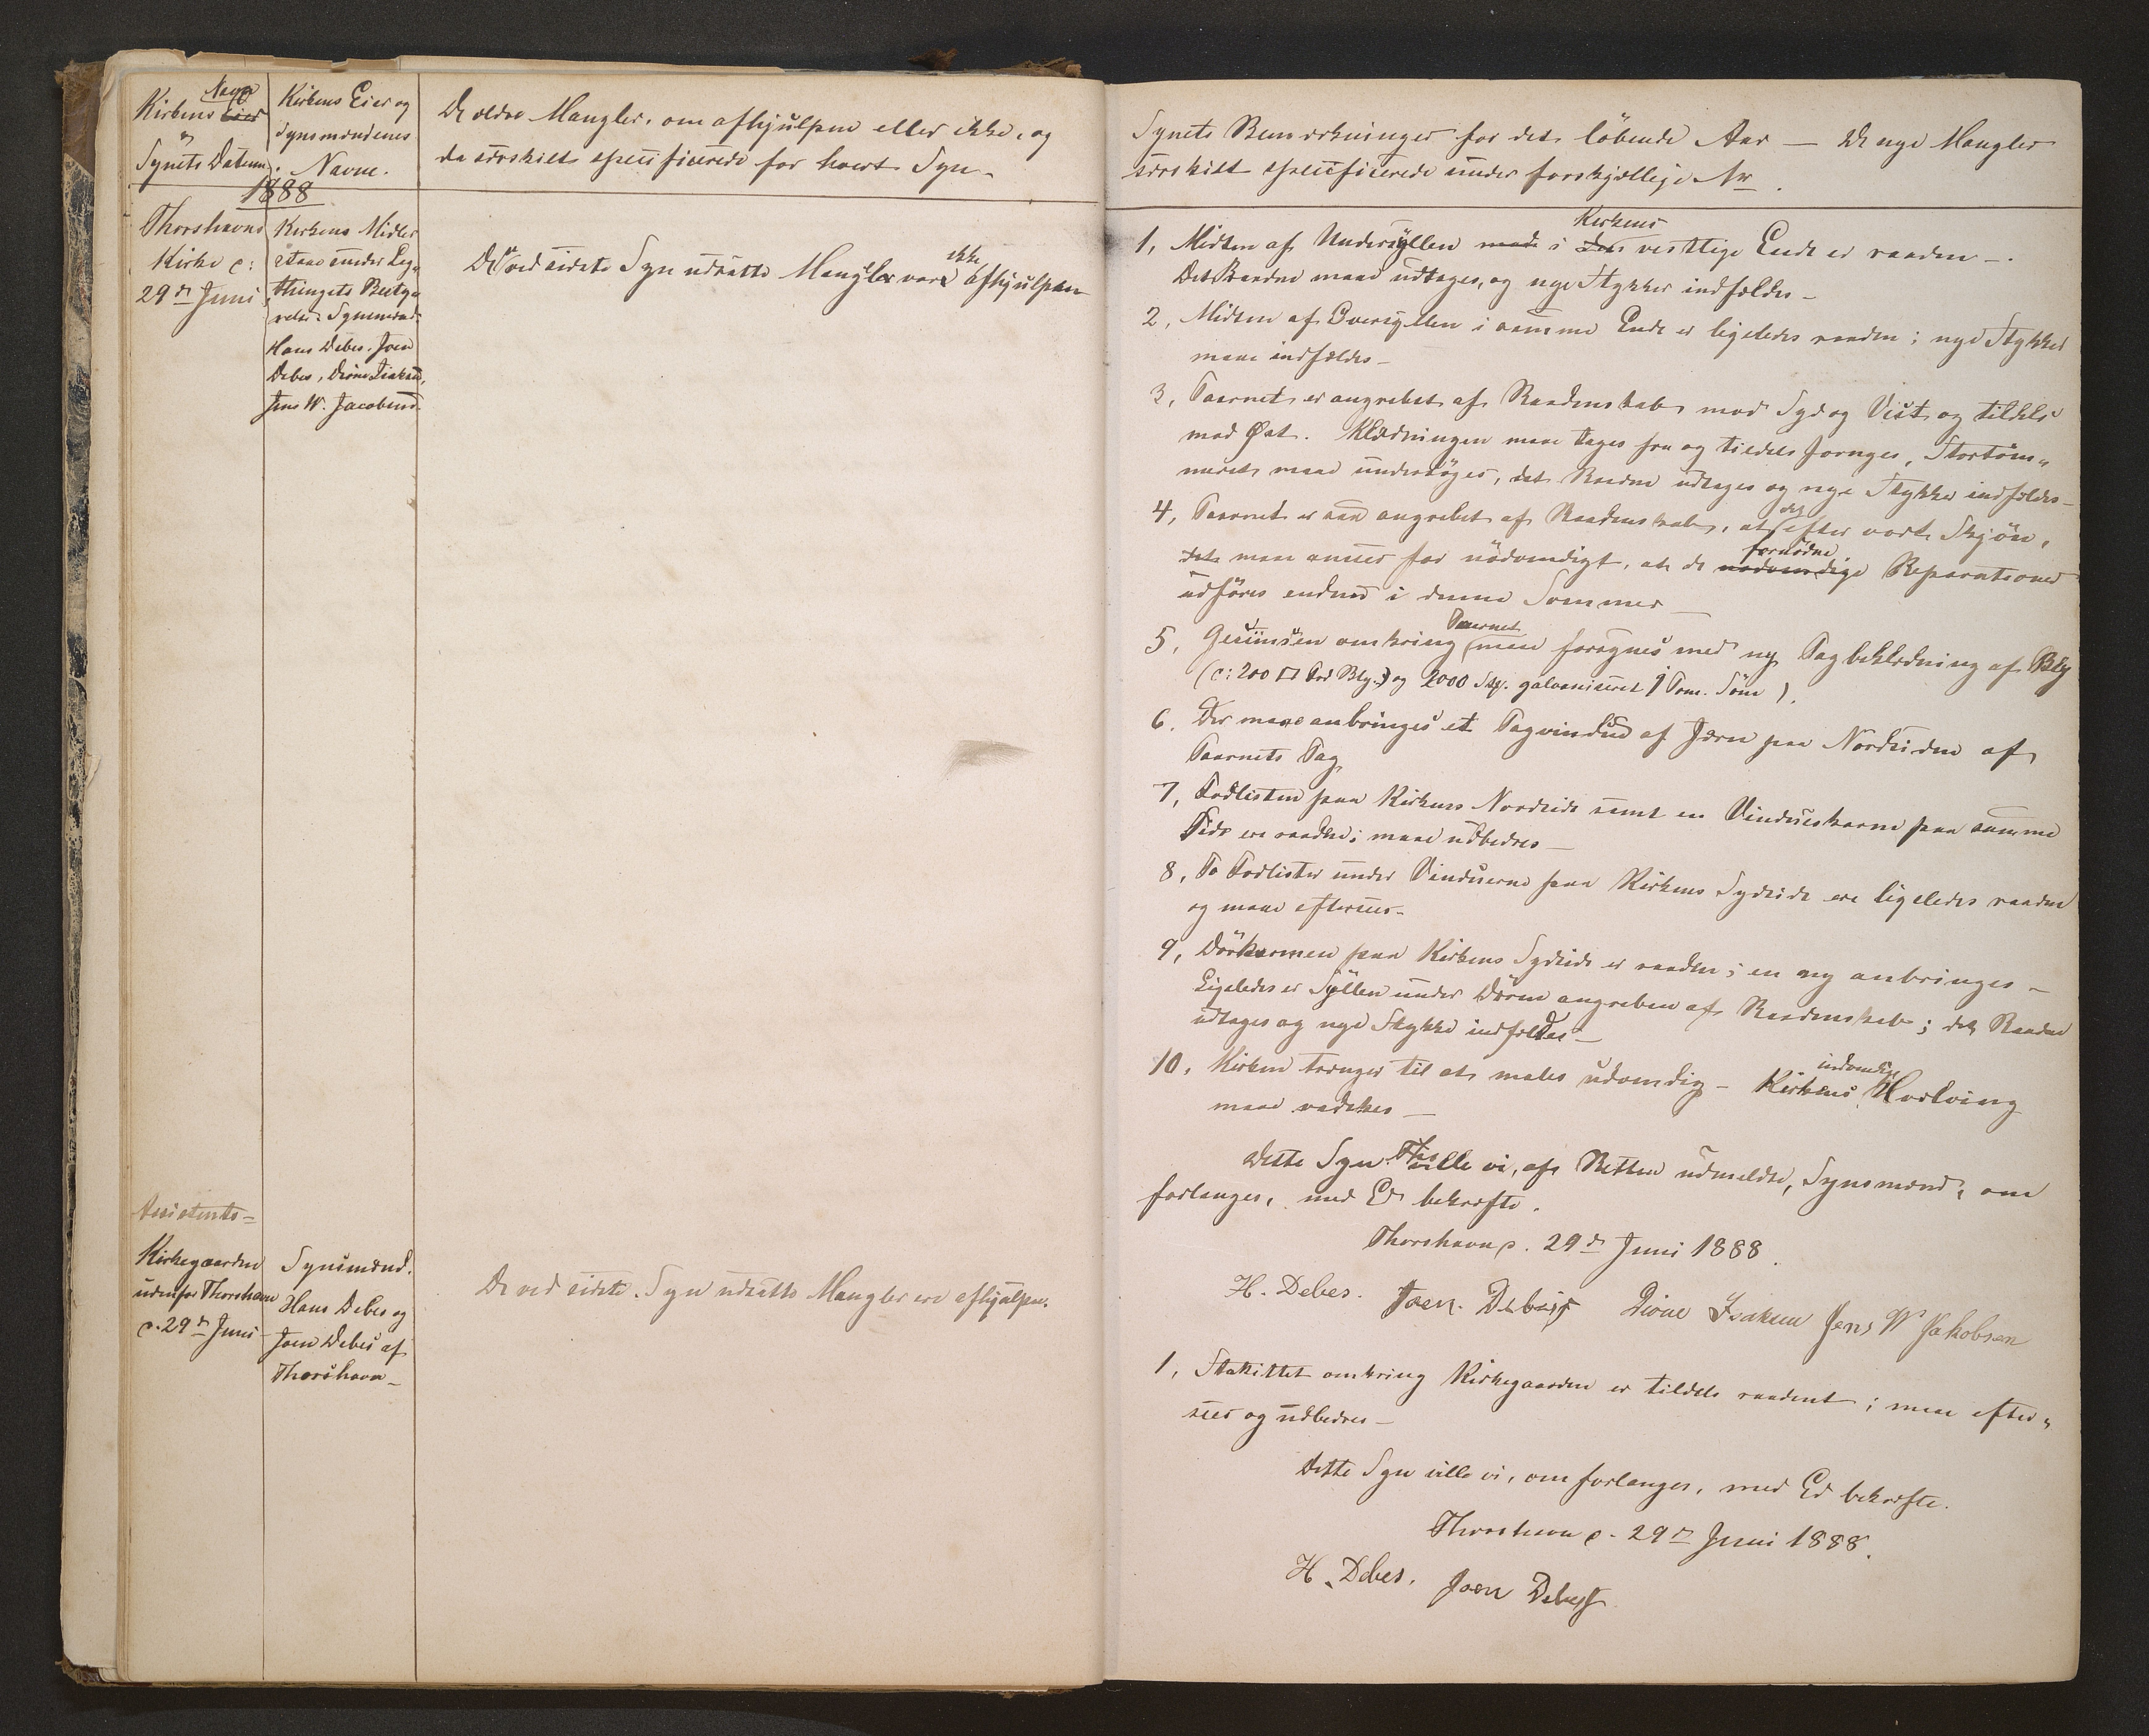 Navn
Kirkens Eier
og
Synets Datum.
Kirkens Eier og
Synsmændenes
Navne.
De ældre Mangler, om afhjulpne eller ikke, og
da særskilt specificerede for hvert Syn.
1888
Thorshavns
Kirke d:
29de Juni
Kirkens Midler
staae under Lag„
thingets Besty„
relse. Synsmænd:
Hans Debes. Joen
Debes, Isaksen,
Jens W. Jacobsen.
ikke
De ved sidste Syn udsatte Mangler vare afhjulpne
Assistents-
Kirkegaarden
udenfor Thorshavn
d. 29de Juni
Synsmænd.
Hans Debes og
Joen Debes af
Thorshavn_
De ved sidste Syn udsatte Mangler ere afhjulpne.
Synets Bemærkninger for det löbende Aar — De nye Mangler
særskilt specificerede under forskjællige Nr.
Kirkens
1, Midten af Undersyllen i vestlige Ende er raaden —.
Det Raadne maae udtages, og nye Stykker indfældes _
2, Midten af Oversyllen i samme Ende er ligeledes raaden; nye Stykker
maae indfældes _
3, Taarnet er angrebet af Raadenskab mod Syd og Vest og tildels
mod Øst. Klædningen maae tages fra og tildels fornyes, Stortöm„
meret maae undersöges, det Raadne udtages og nye Stykker indfældes _
4, Taarnet er saa angrebet af Raadenskab, at efter vort Skjön,
det maae ansees for nödvendigt, at de nødvendige Reparationer
fornödne
udföres endnu i denne Sommer _
Taarnet
5, Gesimsen omkring maae forsynes med ny Tagbeklædning af Bly
(c: 200 □ Fod Bly.) og 2000 Stk. galvaniseret 1 Tom. Söm).
6. Der maae anbringes et Tagvindue af Jern paa Nordsiden af
Taarnets Tag
7, Fodlisten paa Kirkens Nordside samt en Vindueskarm paa samme
Side ere raadne; maae udbedres _
8, To Fodlister under Vinduerne paa Kirkens Sydside ere ligeledes raadne
og maae eftersees.
9, Dörkarmen paa Kirkens Sydside er raaden; en ny anbringes _
Ligeledes er Syllen under Dören angreben af Raadenskab; det Raadne
udtages og nye Stykke indfældes _
indvendige
10, Kirken trænger til at males udvendig _ Kirkens Hvælving
maae vadskes _
Dette Syn ville vi, af Retten udmeldte, Synsmænd, om
forlanges, med Ed bekræfte.
Thorshavn d. 29de Juni 1888.
H. Debes. Joen Debes Isaksen Jens W Jakobsen
1, Stakittet omkring Kirkegaarden er tildels raadent; maae efter„
sees og udbedres _
Dette Syn ville vi, om forlanges, med Ed bekræfte.
Thorshavn d. 29de Juni 1888.
H. Debes. Joen Debes